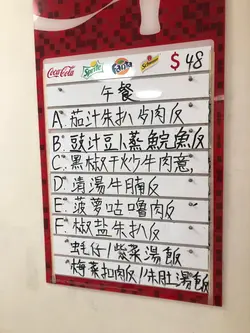 Coca-Cola Sprite Fanta Schweppes $48
午餐
A: 茄汁朱扒 肉反
B: 豉汁豆卜蒸鯇魚反
C: 黑椒干炒牛肉意
D: 清湯牛腩反
E: 菠蘿咕嚕肉反
F: 椒盐朱扒反
蚝仔/紫菜湯飯
梅菜扣肉反/朱肚湯飯